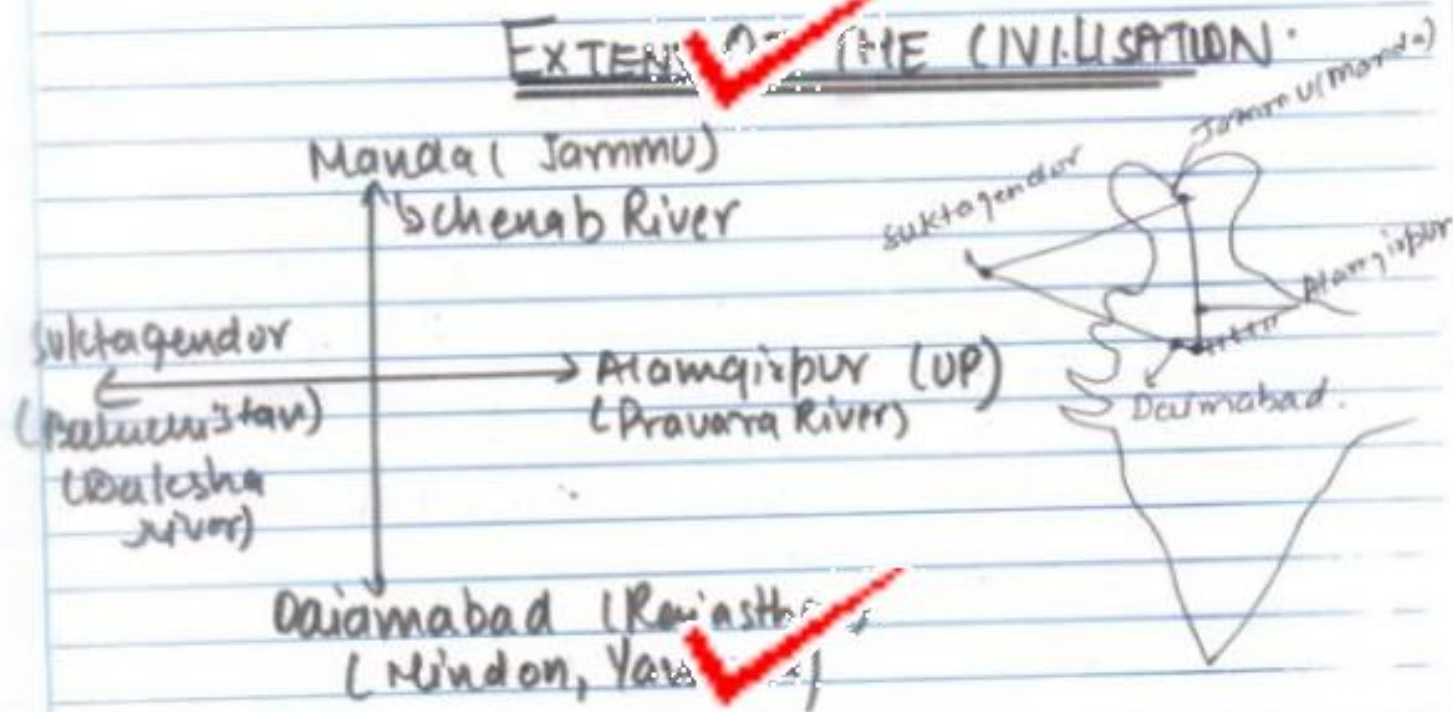 EXTENT OF THE CIVILISATION.
Manda ( Jammu)
↳chenab River
Suktagendor
(Baluchistan)
(Datesha
river)
Alamgirpur (UP)
(Pravara River)
Daiamabad (Rajasth
(Hindon, Ya
suktagendor
Jammu(Manda)
Alamgirpur
Daimabad.